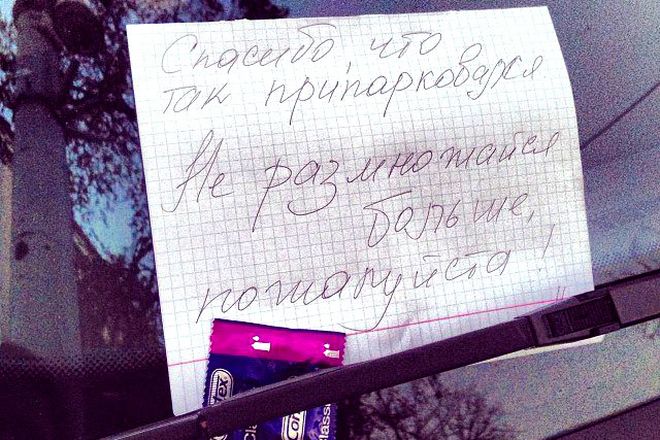 Спасибо, что
так припарковался
Не размножайся
больше,
пожалуйста!
Classic